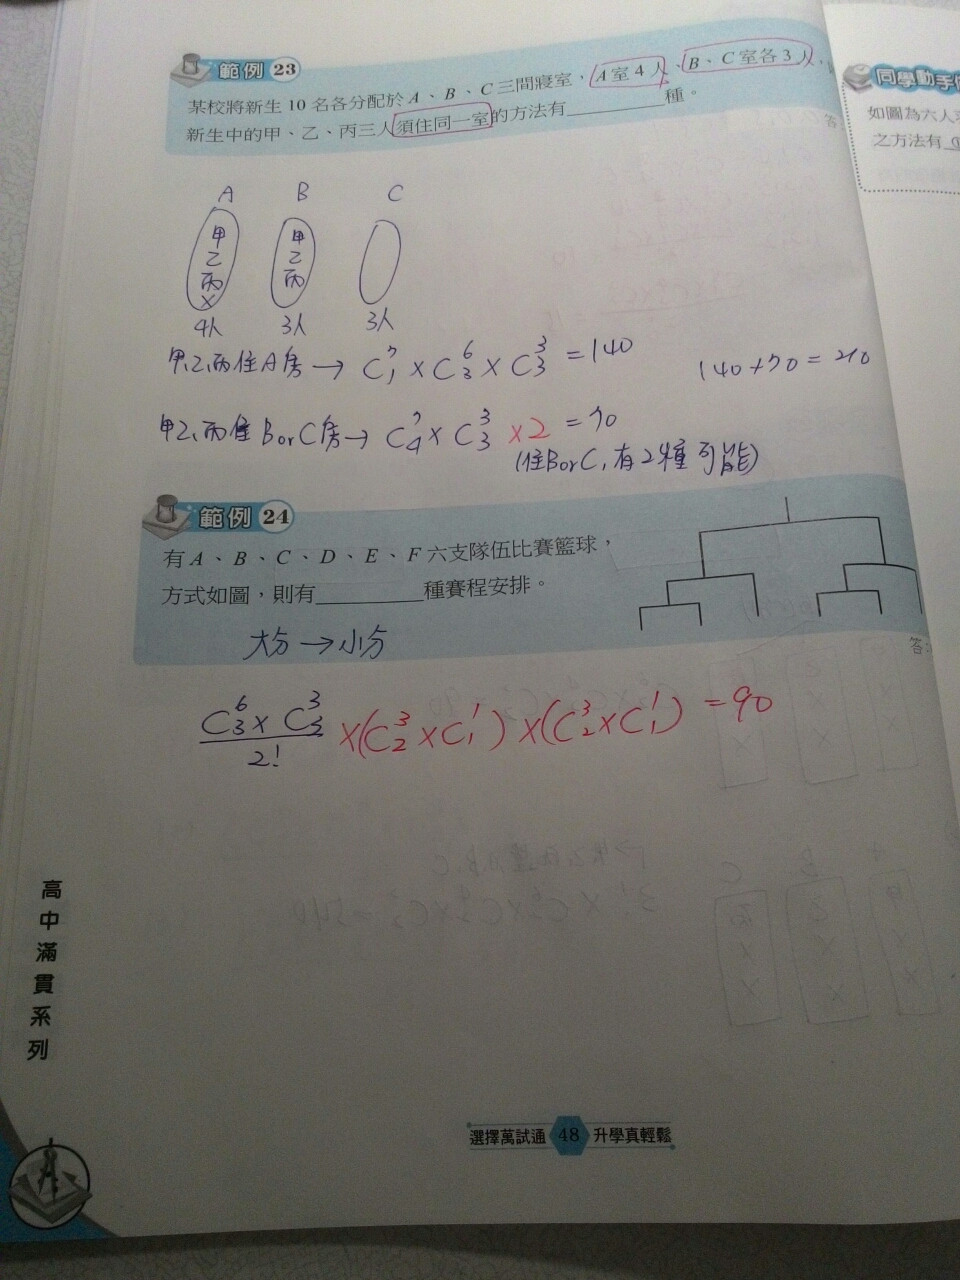 範例 23
某校將新生 10 名各分配於 A、B、C 三間寢室，A室 4 人、B、C 室各 3 人，
新生中的甲、乙、丙三人須住同一室的方法有__________種。
答：
A B C
甲 甲
乙 乙
丙 丙
X
4人 3人 3人
甲、乙、丙住A房→ C⁷₁ × C⁶₃ × C³₃ = 140
140 + 70 = 210
甲、乙、丙住 B or C 房→ C⁷₄ × C³₃ × 2 = 70
(住B or C, 有2種可能)
範例 24
有 A、B、C、D、E、F 六支隊伍比賽籃球，
方式如圖，則有__________種賽程安排。
答：
大分→小分
C⁶₃ × C³₃ / 2! × (C³₂ × C¹₁) × (C³₂ × C¹₁) = 90
高中滿貫系列
選擇萬試通 48 升學真輕鬆
同學動手
如圖為六人
之方法有